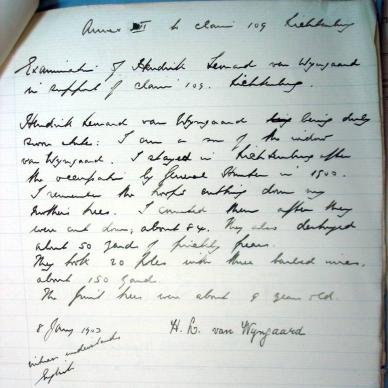 Annex III to claim 109 Lichtenburg
Examination of Hendrik Lenard van Wyngaard
in support of claim 109. Lichtenburg.
Hendrik Lenard van Wyngaard being duly
sworn states: I am a son of the widow
van Wyngaard. I stayed in Lichtenburg after
the occupation by General Hunter in 1900.
I remember the troops cutting down my
mother's trees. I counted them after they
were cut down; about 84. They also destroyed
about 50 yards of prickly pears.
They took 20 poles with three barbed wires,
about 150 yards.
The fruit trees were about 9 years old.
8 Jany 1903 H. L. van Wyngaard
understands
English